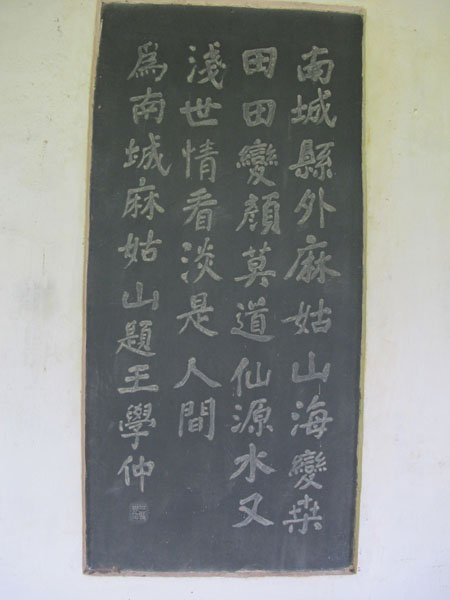 南城縣外麻姑山海變桒
田田變顏莫道仙源水又
淺世情看淡是人間
為南城麻姑山題王學仲